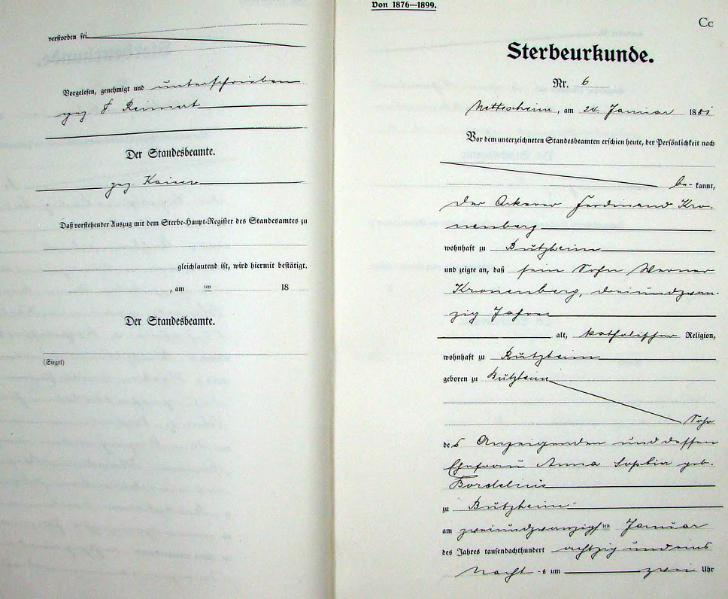 verstorben sei
Vorgelesen, genehmigt und unterschrieben
gez F
Der Standesbeamte.
gez Kaiser
Daß vorstehender Auszug mit dem Sterbe-Haupt-Register des Standesamtes zu
gleichlautend ist, wird hiermit bestätigt.
, am ten 18
Der Standesbeamte.
(Siegel)
Von 1876—1899.
Cc
Sterbeurkunde.
Nr. 6
Nettesheim, am 24. Januar 1881
Vor dem unterzeichneten Standesbeamten erschien heute, der Persönlichkeit nach
be- kannt,
der Ackerer Ferdinand Kro-
nenberg
wohnhaft zu Butzheim
und zeigte an, daß sein Sohn Werner
Kronenberg, dreiundzwan-
zig Jahre
alt, katholischer Religion,
wohnhaft zu Butzheim
geboren zu Butzheim
Sohn
des Anzeigenden und dessen
Ehefrau Anna Sophia geb.
zu Butzheim
am zweiundzwanzigsten Januar
des Jahres tausendachthundert achtzig und eins
Nacht -s um zwei Uhr